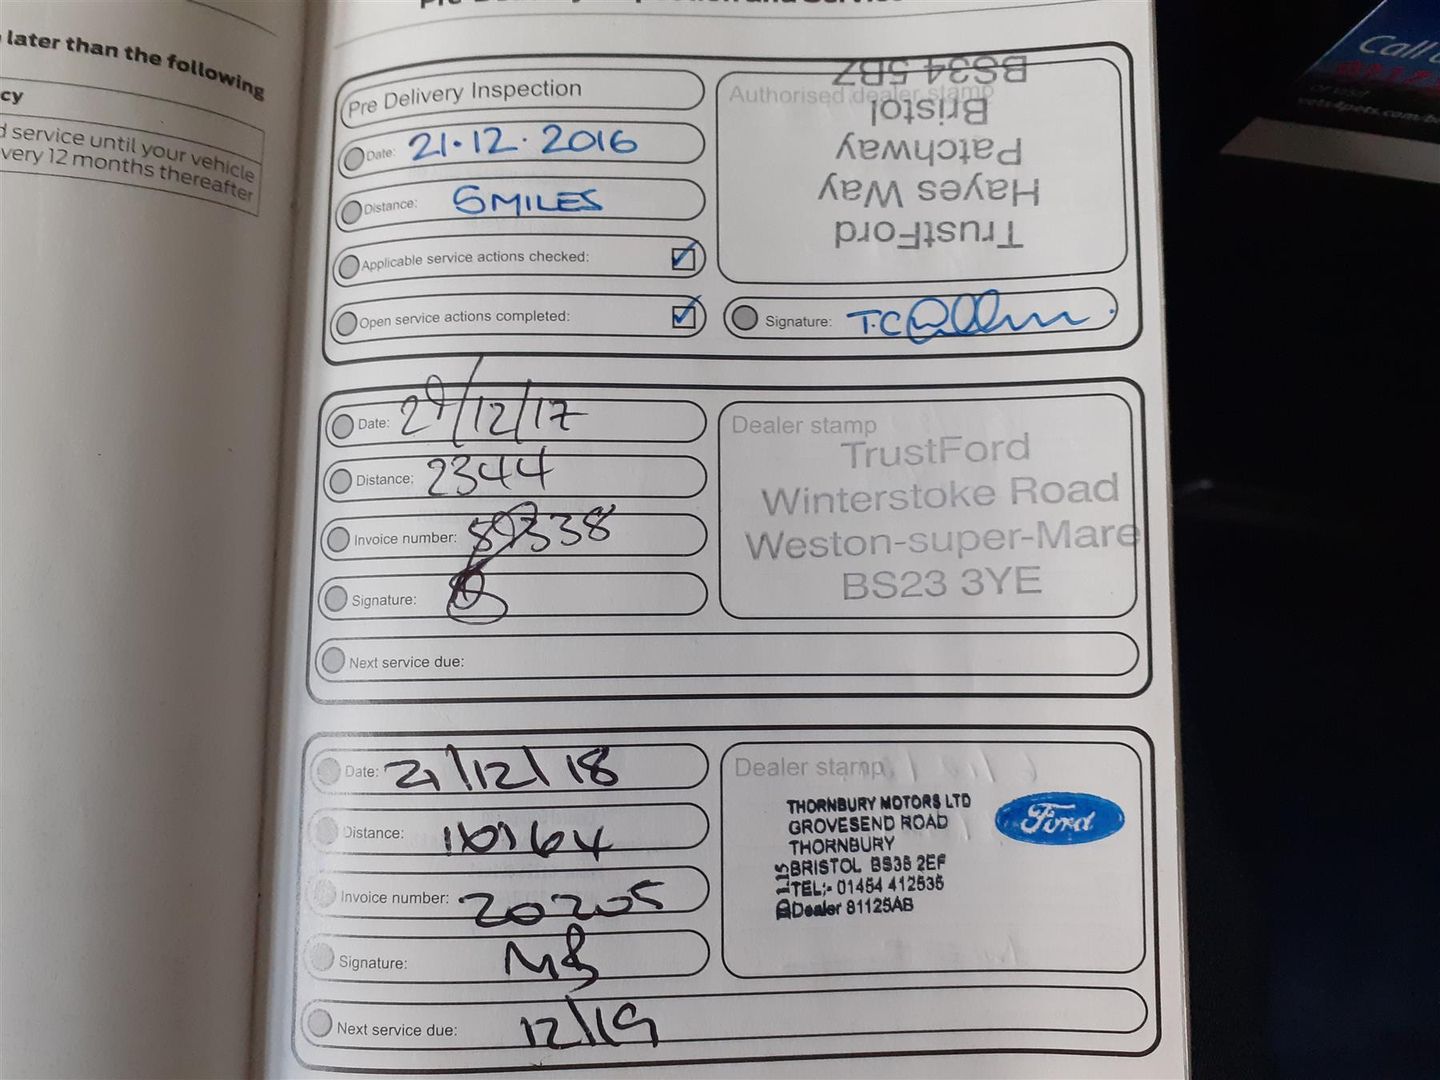 later than the following
cy
d service until your vehicle
very 12 months thereafter
Pre Delivery Inspection
Date: 21.12.2016
Distance: 5 MILES
Applicable service actions checked:
Open service actions completed:
Authorised dealer stamp
TrustFord
Hayes Way
Patchway
Bristol
BS34 5BZ
Signature: T.C
Date: 29/12/17
Distance: 2344
Invoice number: 89338
Signature:
Next service due:
Dealer stamp
TrustFord
Winterstoke Road
Weston-super-Mare
BS23 3YE
Date: 21/12/18
Distance: 10164
Invoice number: 20205
Signature:
Next service due: 12/19
Dealer stamp
THORNBURY MOTORS LTD
GROVESEND ROAD
THORNBURY
BRISTOL BS35 2EF
TEL:- 01454 412535
Dealer 81125AB
Ford
Call